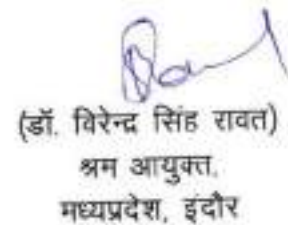 (डॉ. विरेन्द्र सिंह रावत)
श्रम आयुक्त,
मध्यप्रदेश, इंदौर